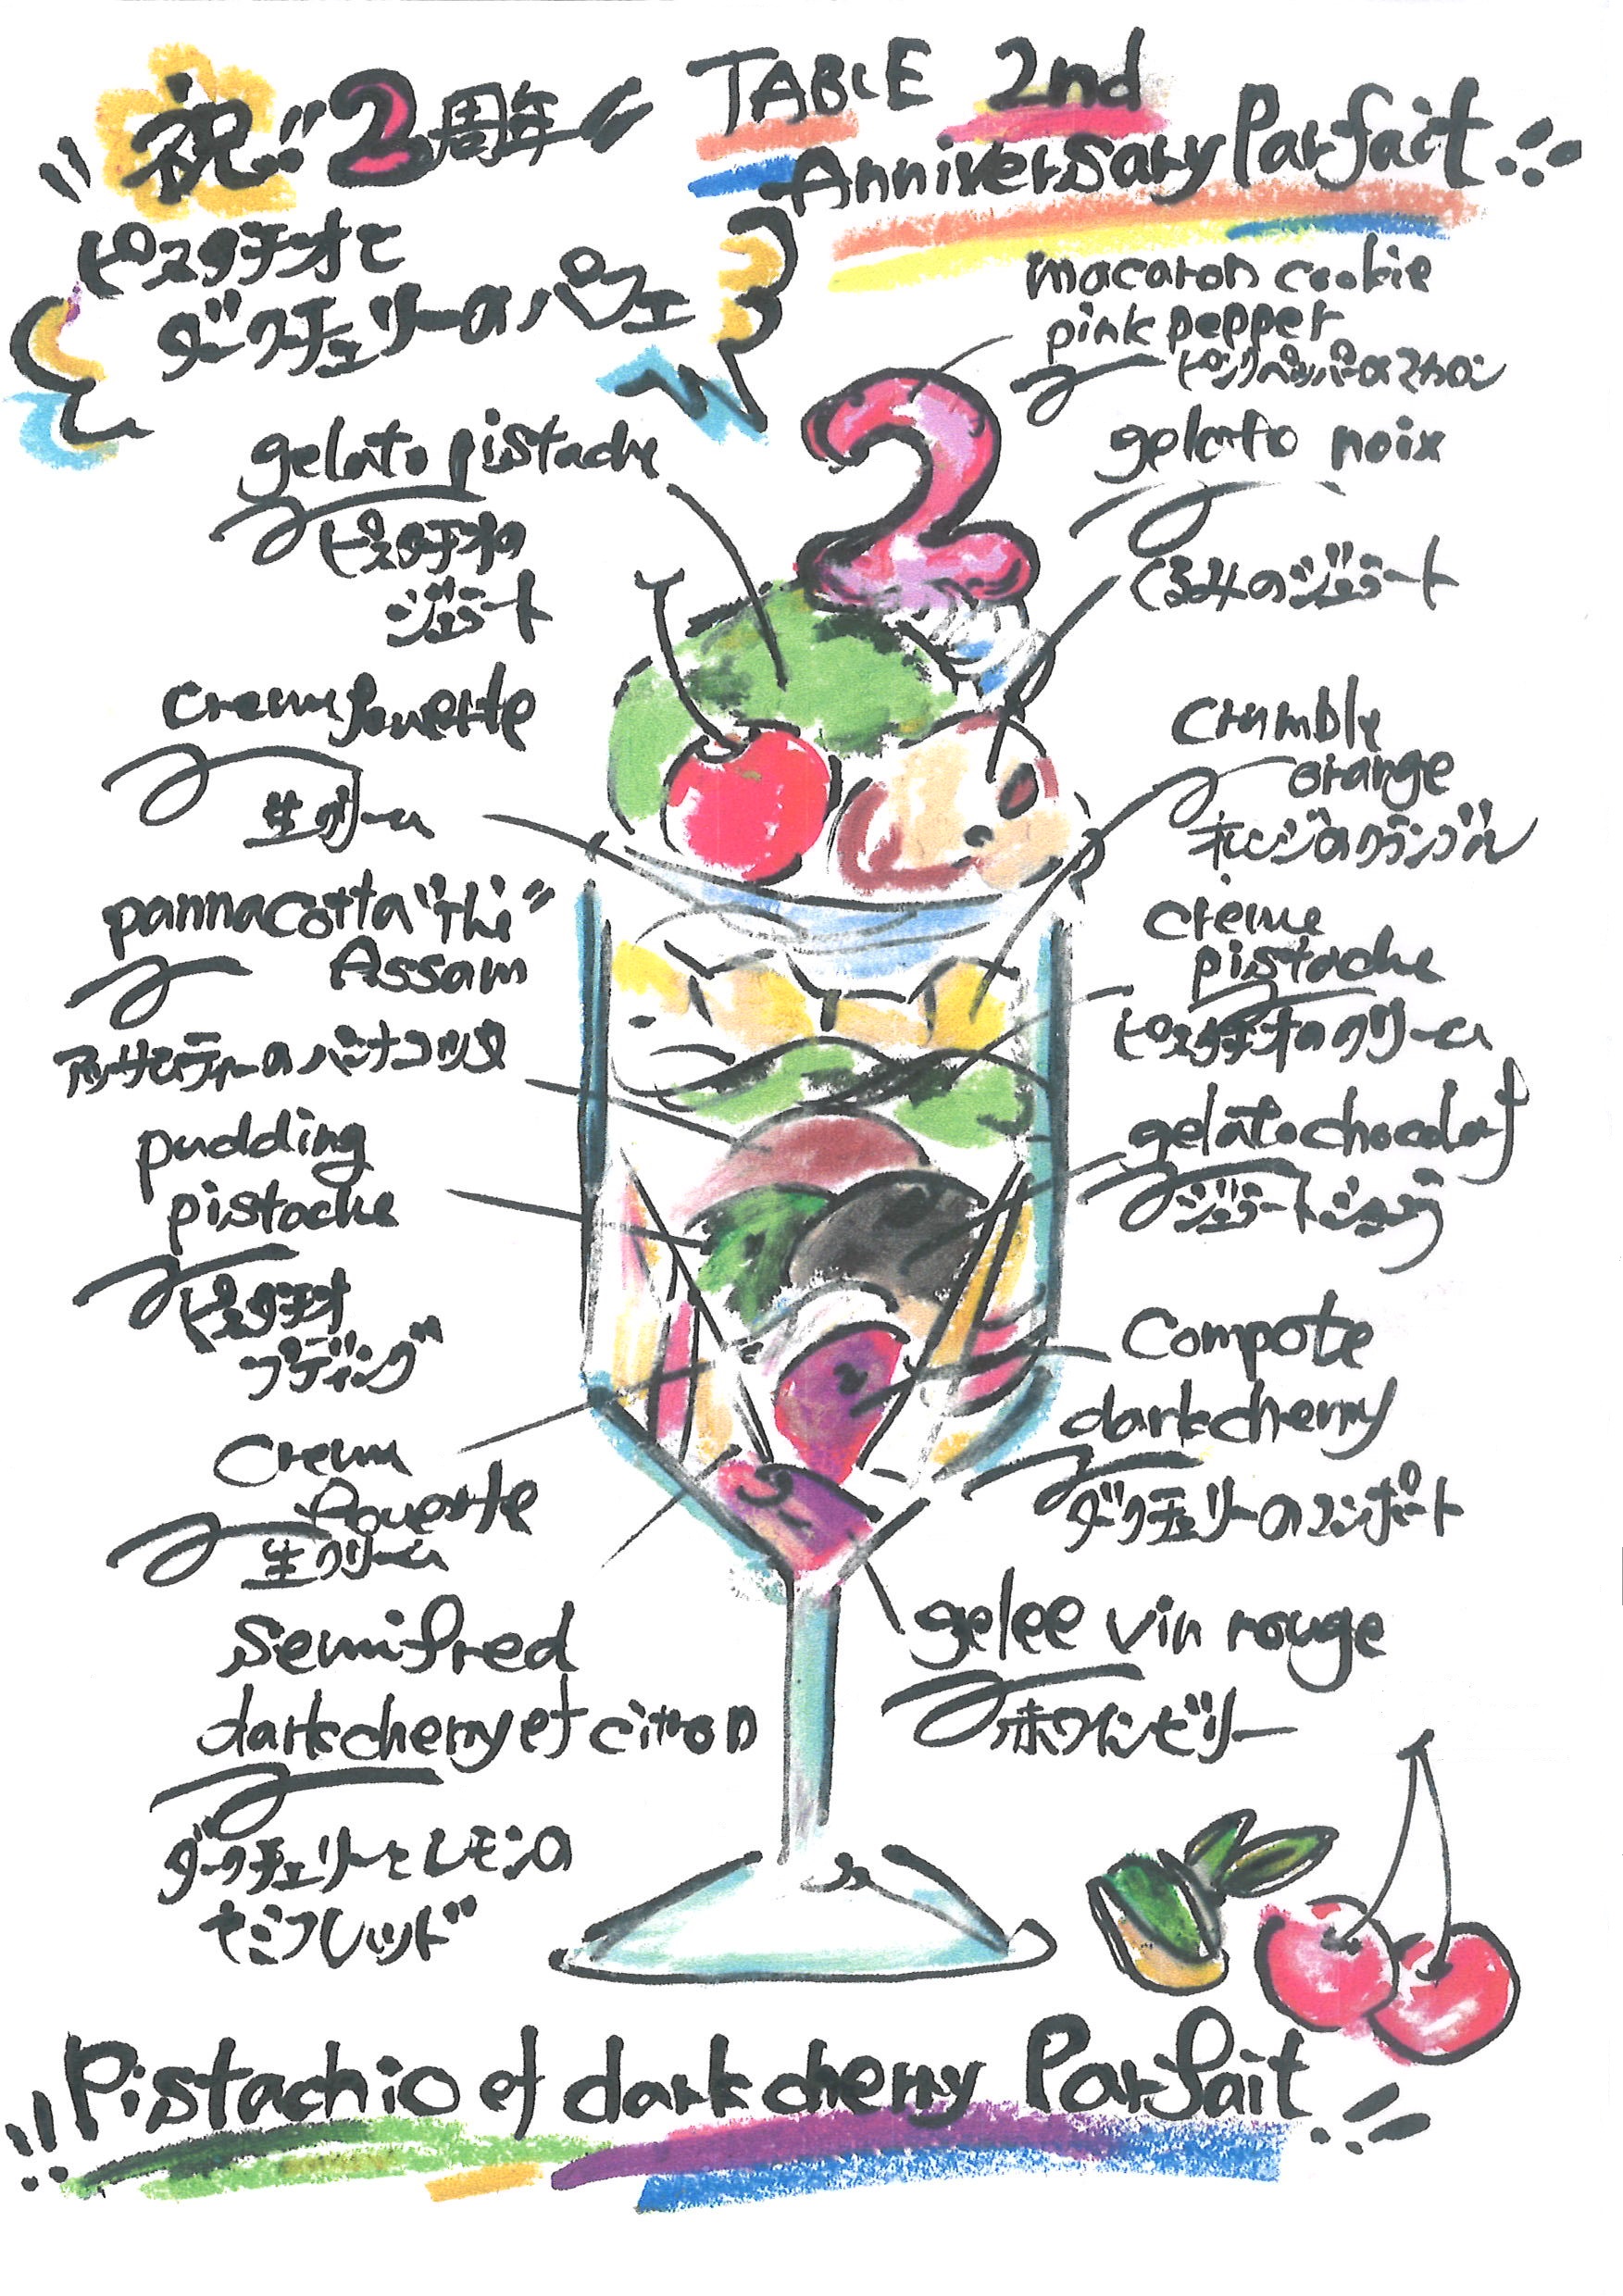 祝!! 2周年
TABLE 2nd
Anniversary Parfait
ピスタチオと
ダークチェリーのパフェ
macaron cookie
pink pepper
ピンクペッパーのマカロン
gelato pistache
ピスタチオの
ジェラート
gelato noix
くるみのジェラート
cream fouette
生クリーム
crumble
orange
オレンジのクランブル
pannacotta "thé"
Assam
アッサムティーのパンナコッタ
creme
pistache
ピスタチオのクリーム
pudding
pistache
ピスタチオ
プディング
gelato chocolat
ジェラートショコラ
cream
fouette
生クリーム
Compote
darkcherry
ダークチェリーのコンポート
semifred
darkcherry et citron
ダークチェリーとレモンの
セミフレッド
gelee vin rouge
赤ワインゼリー
Pistachio et darkcherry Parfait